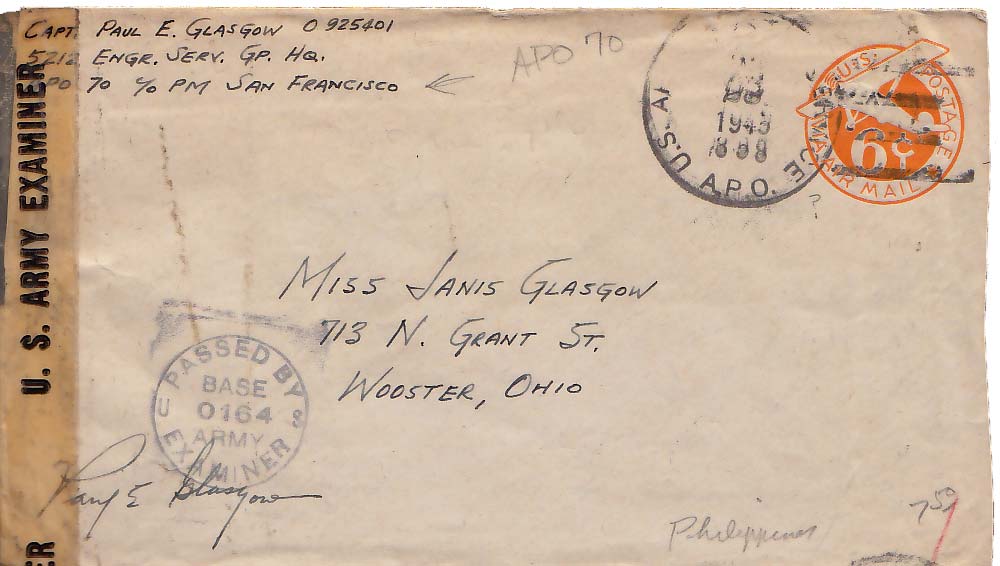 CAPT. PAUL E. GLASGOW O 925401
5212 ENGR. SERV. GP. HQ.
APO 70 c/o PM SAN FRANCISCO
APO 70
U.S. A
A.P.O.
1945
U.S. POSTAGE
6¢
VIA AIR MAIL
?
U. S. ARMY EXAMINER
MISS JANIS GLASGOW
713 N. GRANT ST.
WOOSTER, OHIO
PASSED BY
BASE
0164
ARMY
EXAMINER
Paul E Glasgow
Philippines
7 50
ER